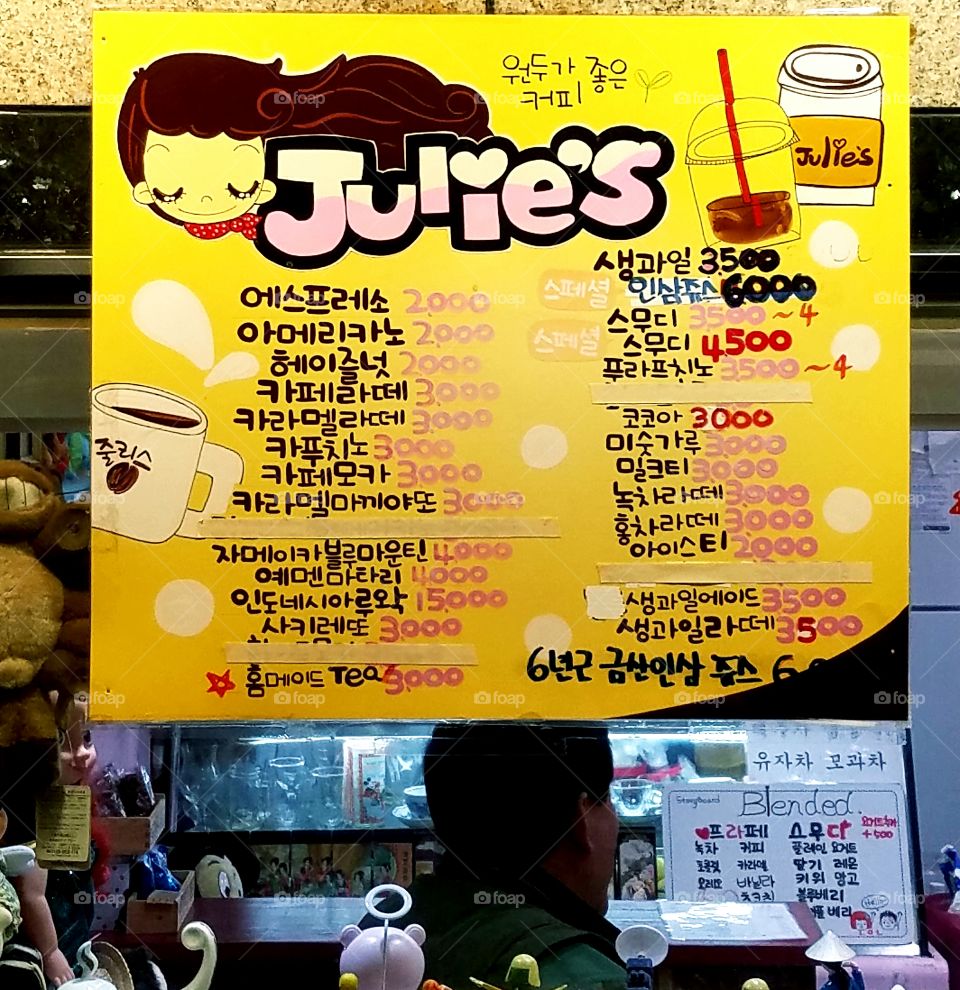 원두가 좋은
커피
Julie's
Julie's
줄리스
에스프레소 2,000
아메리카노 2,000
헤이즐넛 2,000
카페라떼 3,000
카라멜라떼 3,000
카푸치노 3000
카페모카 3,000
카라멜마끼야또 3000
자메이카블루마운틴 4,000
예멘마타리 4,000
인도네시아루왁 15,000
샤키레또 3,000
홈메이드 Tea 3,000
생과일 3,500
스페셜 인삼쥬스 6000
스무디 3500 ~ 4
스페셜 스무디 4,500
푸라프치노 3,500 ~ 4
코코아 3000
미숫가루 3000
밀크티 3000
녹차라떼 3000
홍차라떼 3000
아이스티 2000
생과일에이드 3500
생과일라떼 3500
6년근 금산인삼 쥬스
유자차 모과차
Storyboard
Blended
프라페 스무디
+500
녹차 커피 플레인 요거트
초콜렛 카라멜 딸기 레몬
오레오 바닐라 키위 망고
블루베리
foap